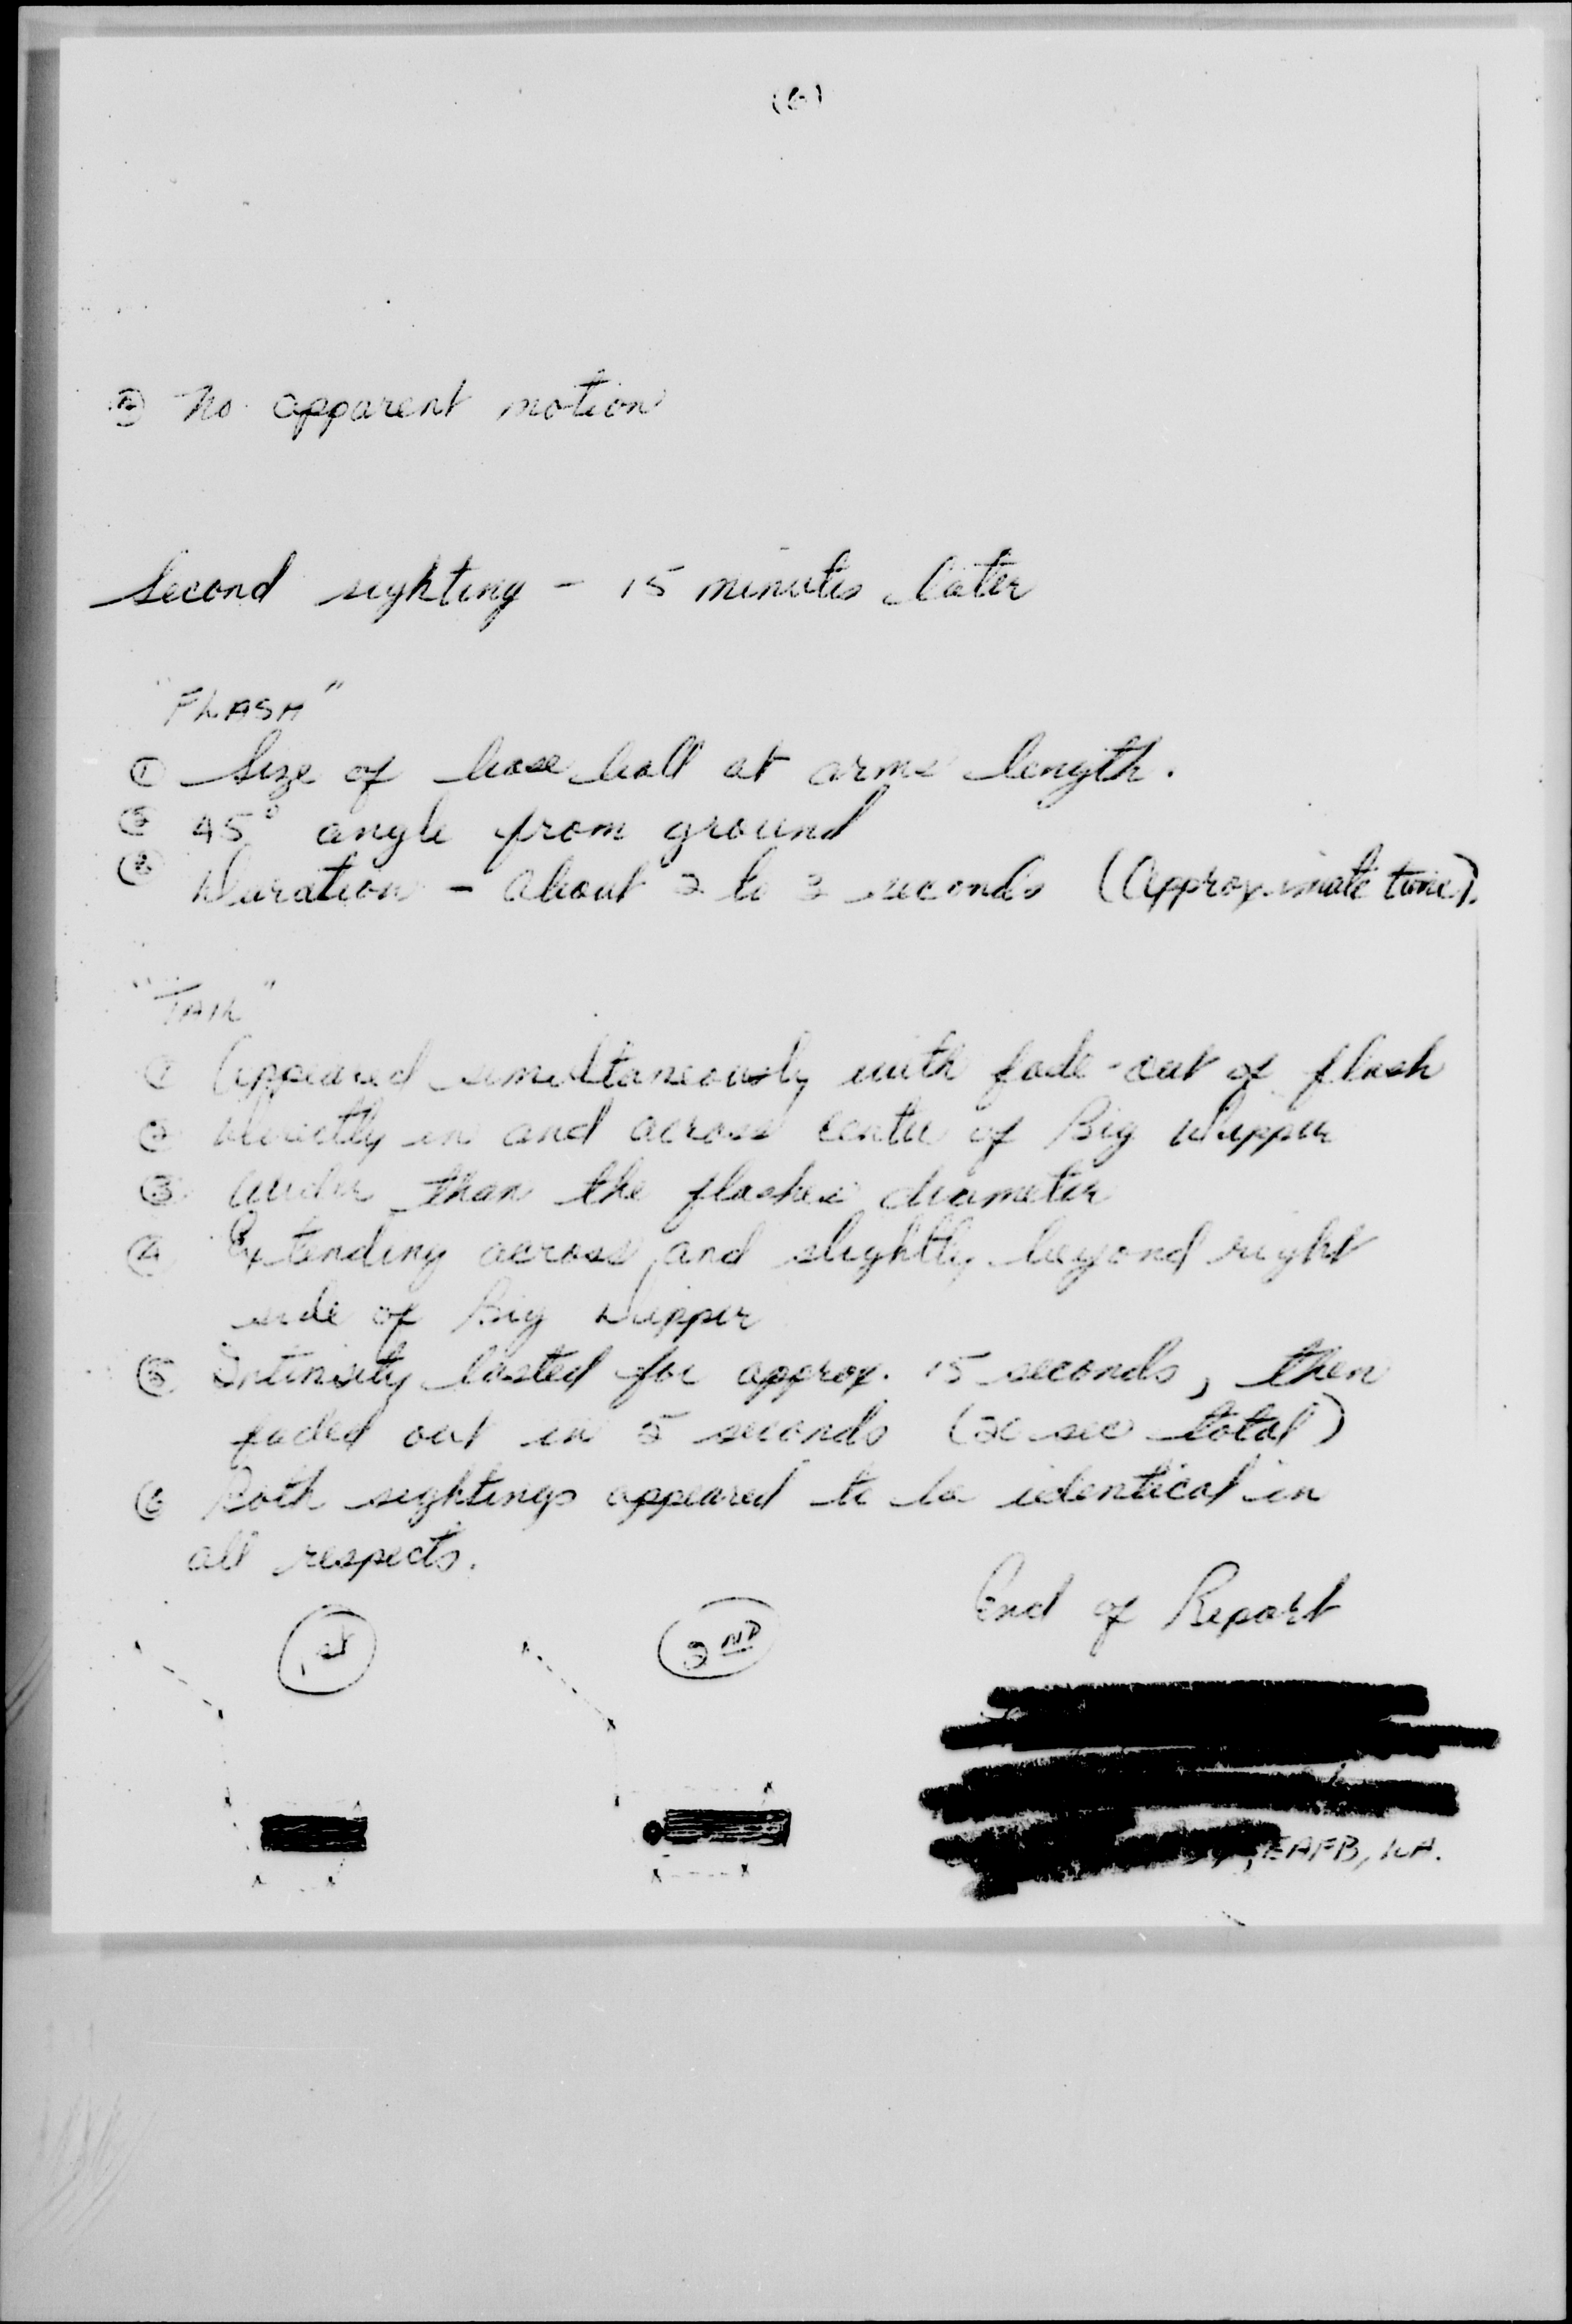 (6)
No apparent motion
Second sighting - 15 minutes later
"FLASH"
① Size of base ball at arms length.
② 45° angle from ground
③ Duration - about 2 to 3 seconds (Approximate time).
"TAIL"
① Appeared simultaneously with fade-out of flash
② Directly in and across center of Big Dipper
③ Wider than the flashes diameter
④ Extending across and slightly beyond right
side of Big Dipper
⑤ Intensity lasted for approx. 15 seconds, then
faded out in 5 seconds (20 sec total)
⑥ Both sightings appeared to be identical in
all respects.
End of Report
1st
2ND
EAFB,